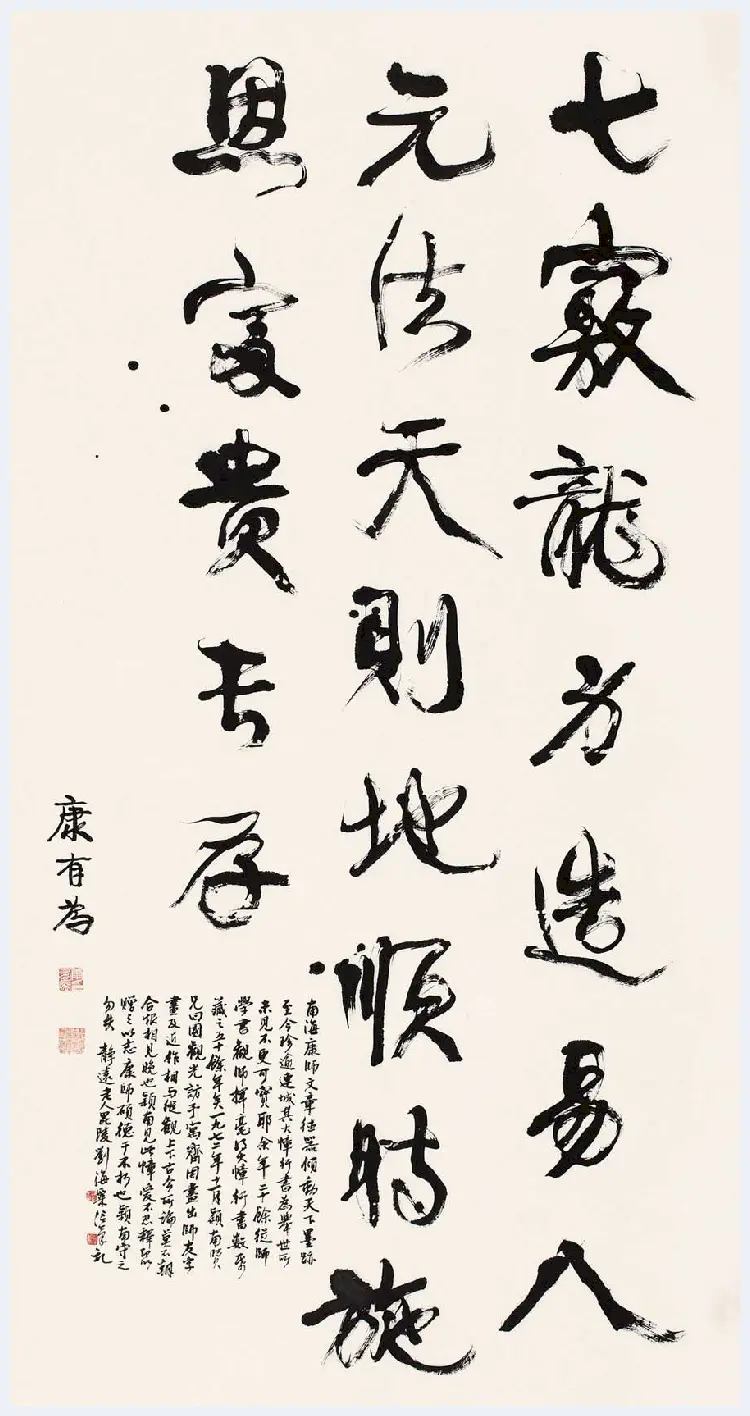 七竅龍身造易八
元法天則地順時施
恩富貴長存
康有為
南海康師文章 器傾動天下墨跡
至今珍逾連城其大幛行書為舉世所
未見不更可寶耶余年二十餘從師
學書觀師揮毫得大幛行書數
藏之五十餘年矣一九七二年十一月穎南賢
兄回國觀光訪予寓齋因盡出師友字
畫及近作相与縱觀上下古今所論莫不
合恨相見晚也穎南見此幛愛不忍釋
贈之以志康師碩德千古不朽也穎南守之
勿失 靜遠老人毘陵劉海粟 筆記